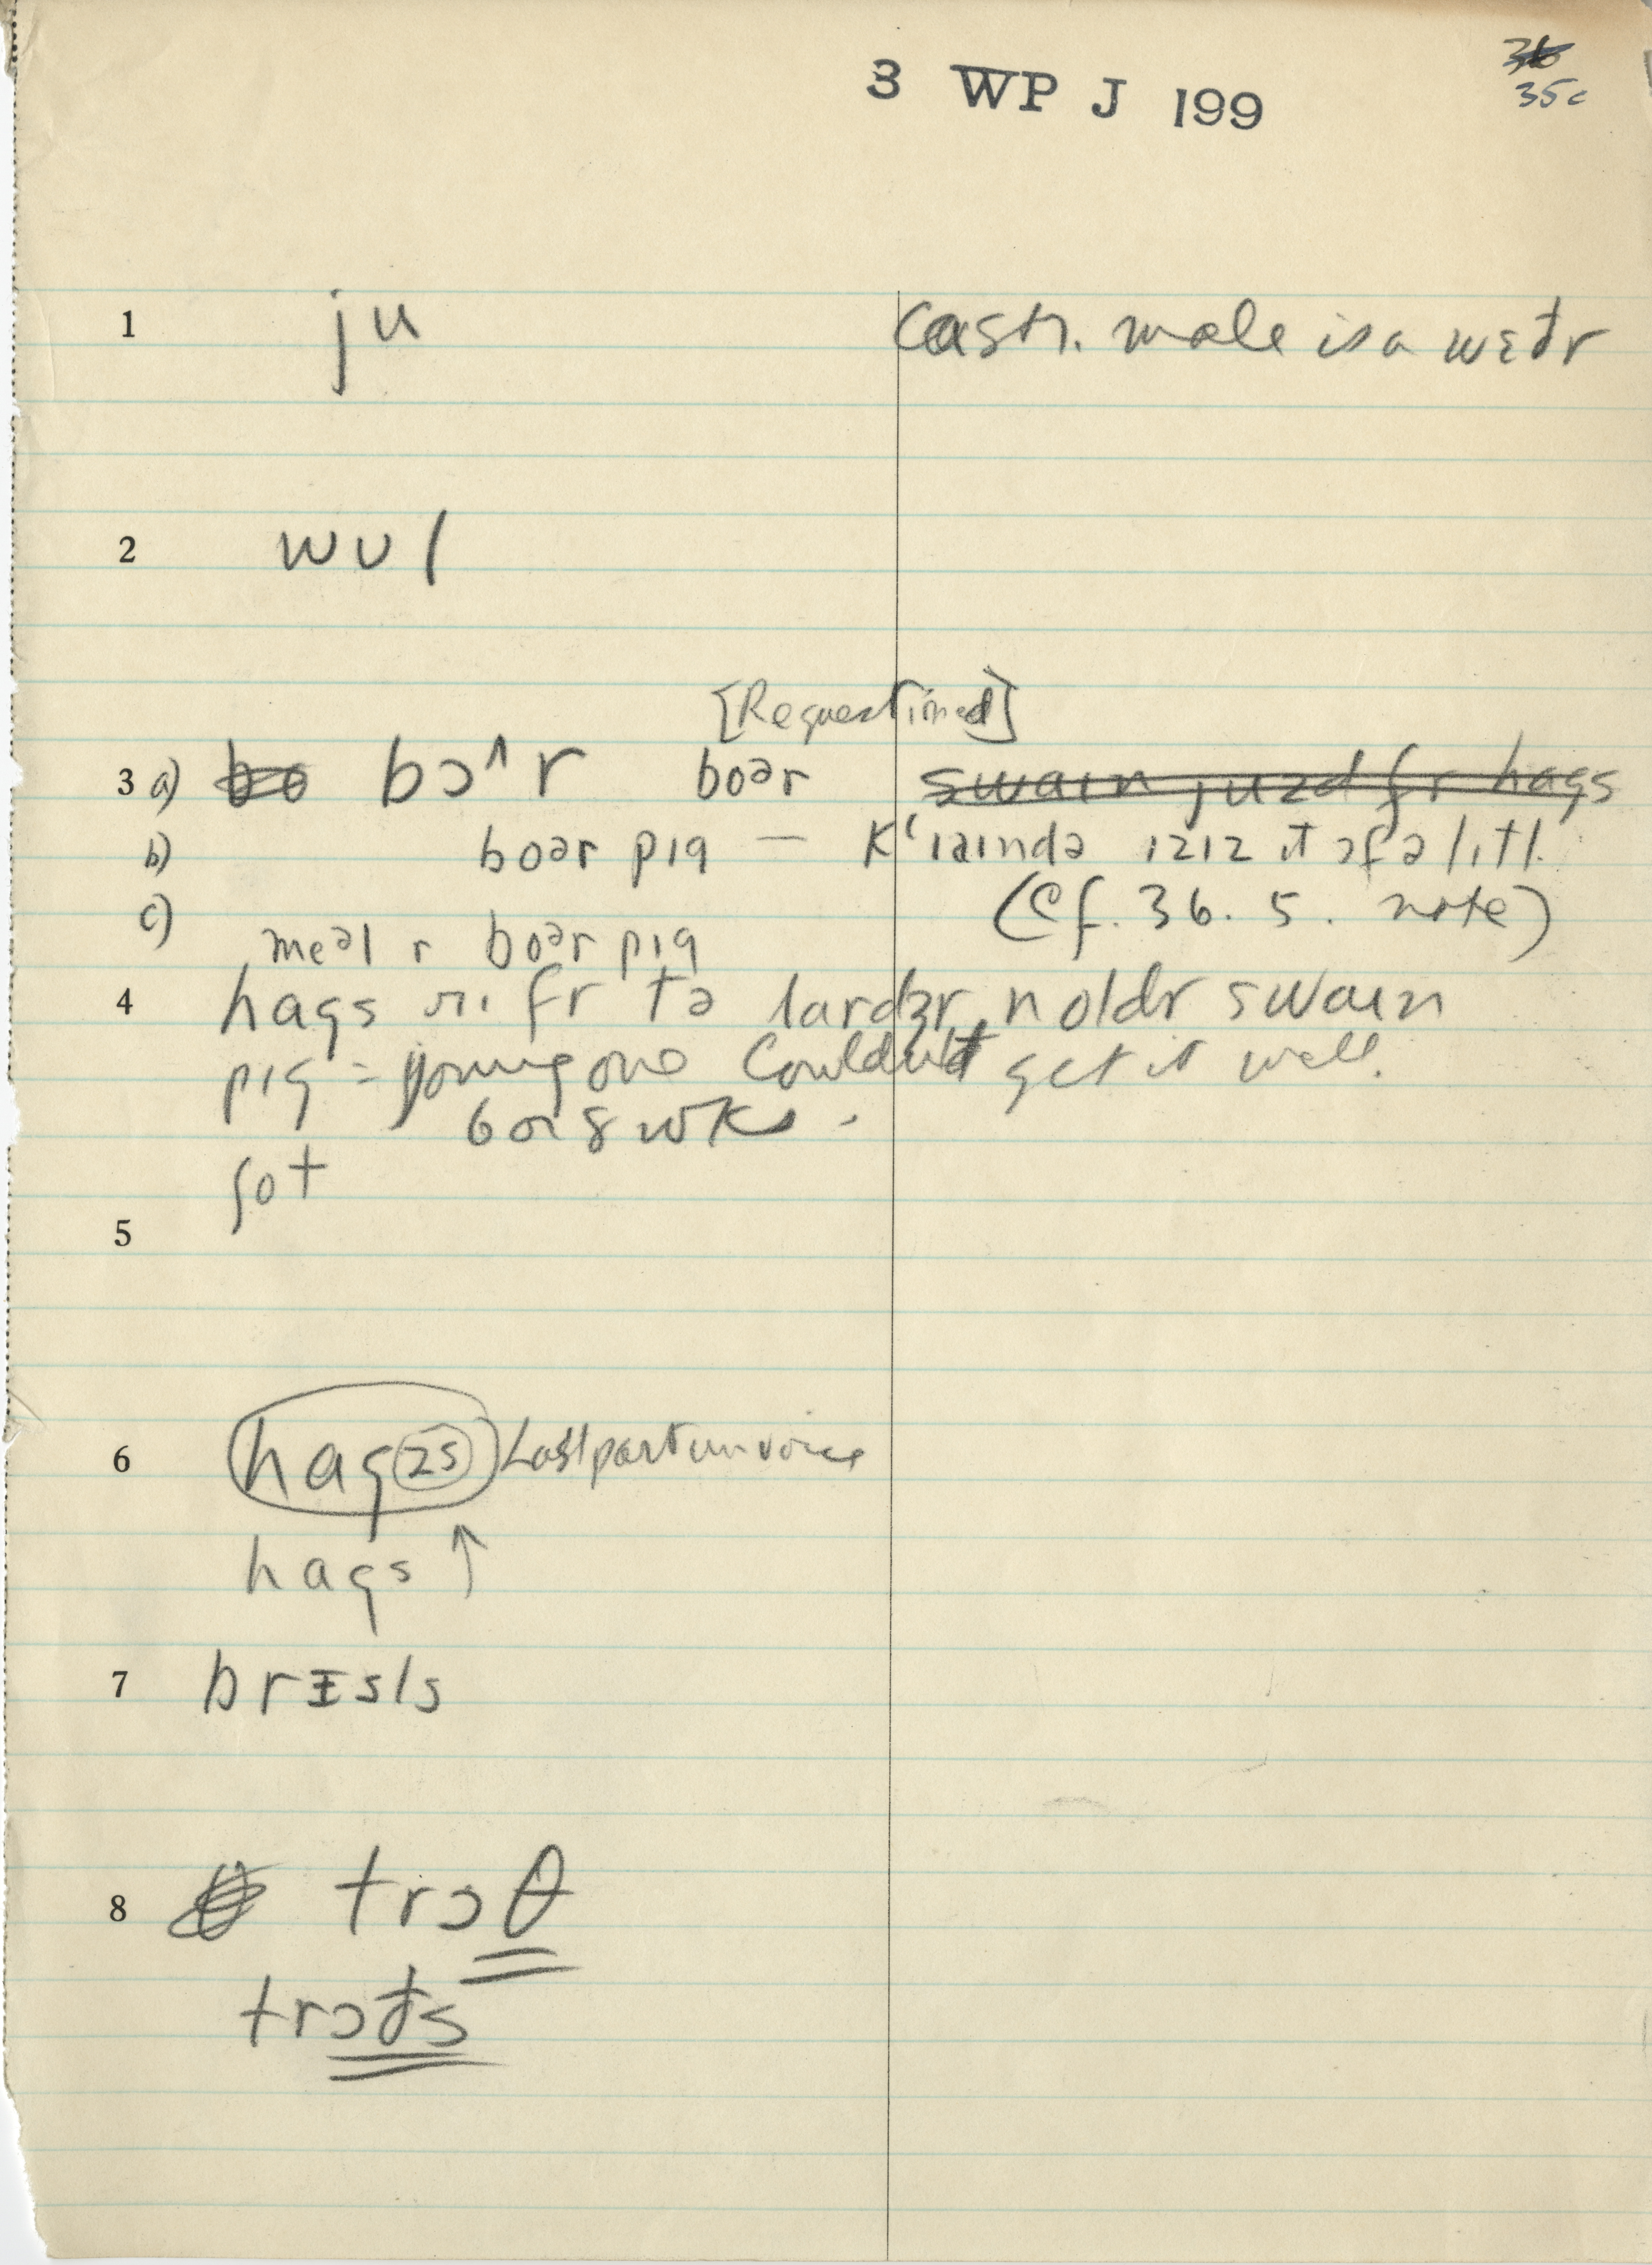 3 WP J 199
36
35c
1 ju Castr. male is a wɛðr
2 wul
[Requestioned]
3 a) bo bɔ^r boər swaɪn juzd fr hags
b) boər pɪg — k‘ɪaɪndə ɪzɪz ɪt ɔf ə lɪtl.
c) (Cf. 36. 5. note)
meəl r boər pɪg
4 hags fr tə lardʒr n oldr swaɪn
pɪg = young one couldn't get it well.
6 or 8 wks.
ʃot
5
6 hagzs Last part unvoice
hags ↑
7 brɪsls
8 trɔθ
trɔðs